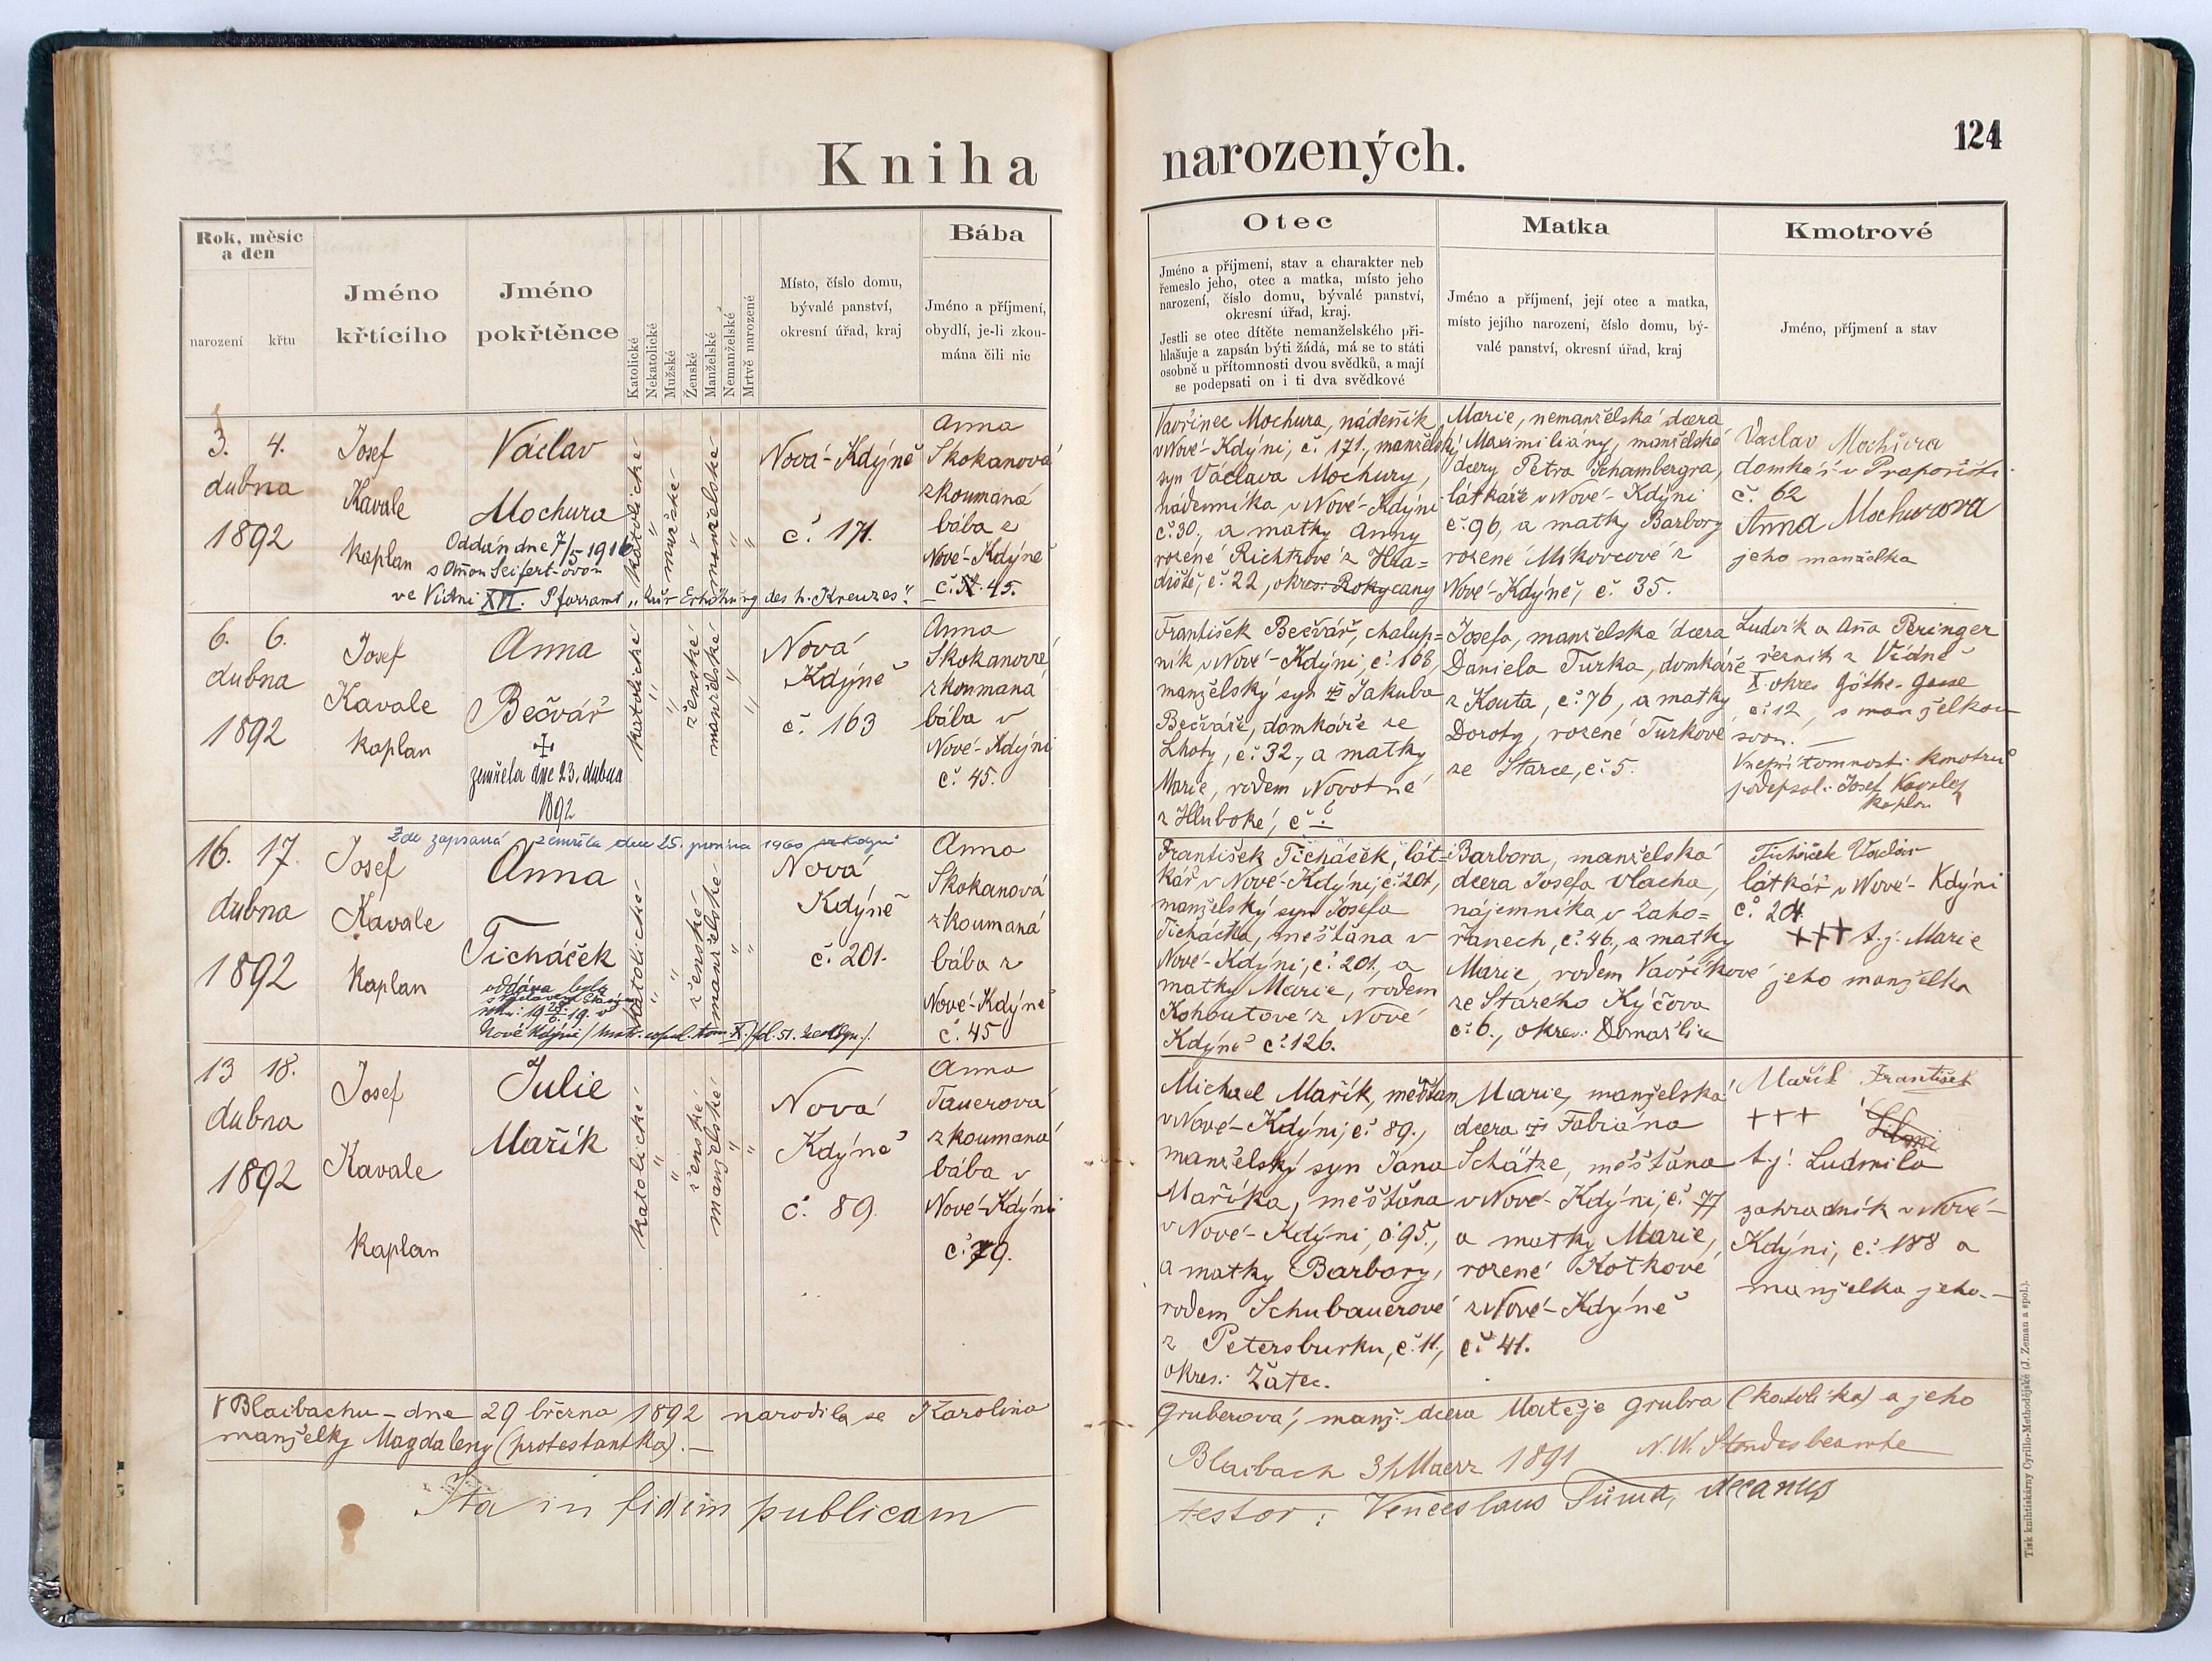 Kniha
narozených.
124
Rok, měsíc
a den
narození
křtu
Jméno
křtícího
Jméno
pokřtěnce
Katolické
Nekatolické
Mužské
Ženské
Manželské
Nemanželské
Mrtvě narozené
Místo, číslo domu,
bývalé panství,
okresní úřad, kraj
Bába
Jméno a příjmení,
obydlí, je-li zkou-
mána čili nic
Otec
Jméno a příjmení, stav a charakter neb
řemeslo jeho, otec a matka, místo jeho
narození, číslo domu, bývalé panství,
okresní úřad, kraj.
Jestli se otec dítěte nemanželského při-
hlašuje a zapsán býti žádá, má se to státi
osobně u přítomnosti dvou svědků, a mají
se podepsati on i ti dva svědkové
Matka
Jméno a příjmení, její otec a matka,
místo jejího narození, číslo domu, bý-
valé panství, okresní úřad, kraj
Kmotrové
Jméno, příjmení a stav
3. 4.
dubna
1892
Josef
Kavale
kaplan
Václav
Mochura
Oddán dne 7/5 1916
s Annou Seifert-ovou
ve Vídni XVI. Pfarramt „zur Erhöhung des h. Kreuzes".
katolické
mužské
manželské
Nová-Kdýně
č. 171.
Anna
Skokanová
zkoumaná
bába z
Nové-Kdýně
č. 45.
Vavřinec Mochura, nádeník
v Nové-Kdýni, č. 171, manželský
syn Václava Mochury,
nádenníka v Nové-Kdýni
č. 30., a matky Anny
rozené Richtrové z Hra=
diště, č. 22, okres: Rokycany
Marie, nemanželská dcera
Maximiliány, manželské
dcery Petra Schambergra,
látkaře v Nové-Kdýni
č. 96, a matky Barbory
rozené Mikovcové z
Nové-Kdýně, č. 35.
Vaclav Mochura
domkář v Prapořišti
č. 62
Anna Mochurova
jeho manželka
6. 6.
dubna
1892
Josef
Kavale
kaplan
Anna
Bečvář
zemřela dne 23. dubna
1892
katolické
ženské
manželské
Nová
Kdýně
č. 163
Anna
Skokanová
zkoumaná
bába v
Nové-Kdýni
č. 45.
František Bečvář, chalup=
ník v Nové-Kdýni, č. 168,
manželský syn Jakuba
Bečváře, domkáře ze
Lhoty, č. 32., a matky
Marie, rodem Novotné
z Hluboké, č. ?
Josefa, manželská dcera
Daniela Turka, domkáře
z Kouta, č. 76, a matky
Doroty, rozené Turkové
ze Starce, č. 5.
Ludvík a Ana Peringer
řezník z Vídně
X. okres Göthe-Gasse
č. 12, s manželkou
svou. —
V nepřítomnosti kmotrů
podepsal: Josef Kavale
kaplan
16. 17.
dubna
1892
Josef
Kavale
kaplan
Zde zapsaná zemřela dne 25. prosince 1960 ve Kdyni
Anna
Ticháček
oddána byla
Nové Kdýni
katolické
ženské
manželské
Nová
Kdýně
č. 201.
Anna
Skokanová
zkoumaná
bába z
Nové-Kdýně
č. 45
František Ticháček, lát=
kář v Nové-Kdýni, č. 201,
manželský syn Josefa
Ticháčka, měštana v
Nové-Kdýni, č. 201, a
matky Marie, rodem
Kohoutové z Nové
Kdýně č. 126.
Barbora, manželská
dcera Josefa Vlacha,
nájemníka v Zaho=
řanech, č. 46., a matky
Marie, rodem Vavříkové
ze Starého Kýčova
č. 6., okres: Domažlice
Ticháček Václav
látkář v Nové-Kdýni
č. 201
+++ t.j. Marie
jeho manželka
13 18.
dubna
1892
Josef
Kavale
kaplan
Julie
Mařík
katolické
ženské
manželské
Nová
Kdýně
č. 89.
Anna
Tauerová
zkoumaná
bába v
Nové-Kdýni
č. 79.
Michael Mařík, měštan
v Nové-Kdýni, č. 89.,
manželský syn Jana
Maříka, měštana
v Nové-Kdýni, č. 95.,
a matky Barbory,
rodem Schubauerové
z Petersburku, č. 11.,
okres: Žatec.
Marie, manželská
dcera Fabiána
Schätze, měštana
v Nové-Kdýni, č. 77
a matky Marie,
rozené Kotkové
z Nové-Kdýně
č. 41.
Mařík František
+++
t.j. Ludmila
zahradník v Nové-
Kdýni, č. 188 a
manželka jeho. —
V Blaibachu - dne 29 března 1892 narodila se Karolina
Gruberová, manž. dcera Matěje Grubra (katolíka) a jeho
manželky Magdaleny (protestantka). —
Blaibach 31 Maerz 1891 N. W. Standesbeamte
Ita in fidem publicam
testor: Venceslaus Tůma, decanus
Tisk knihtiskárny Cyrillo-Methodějské (J. Zeman a spol.).